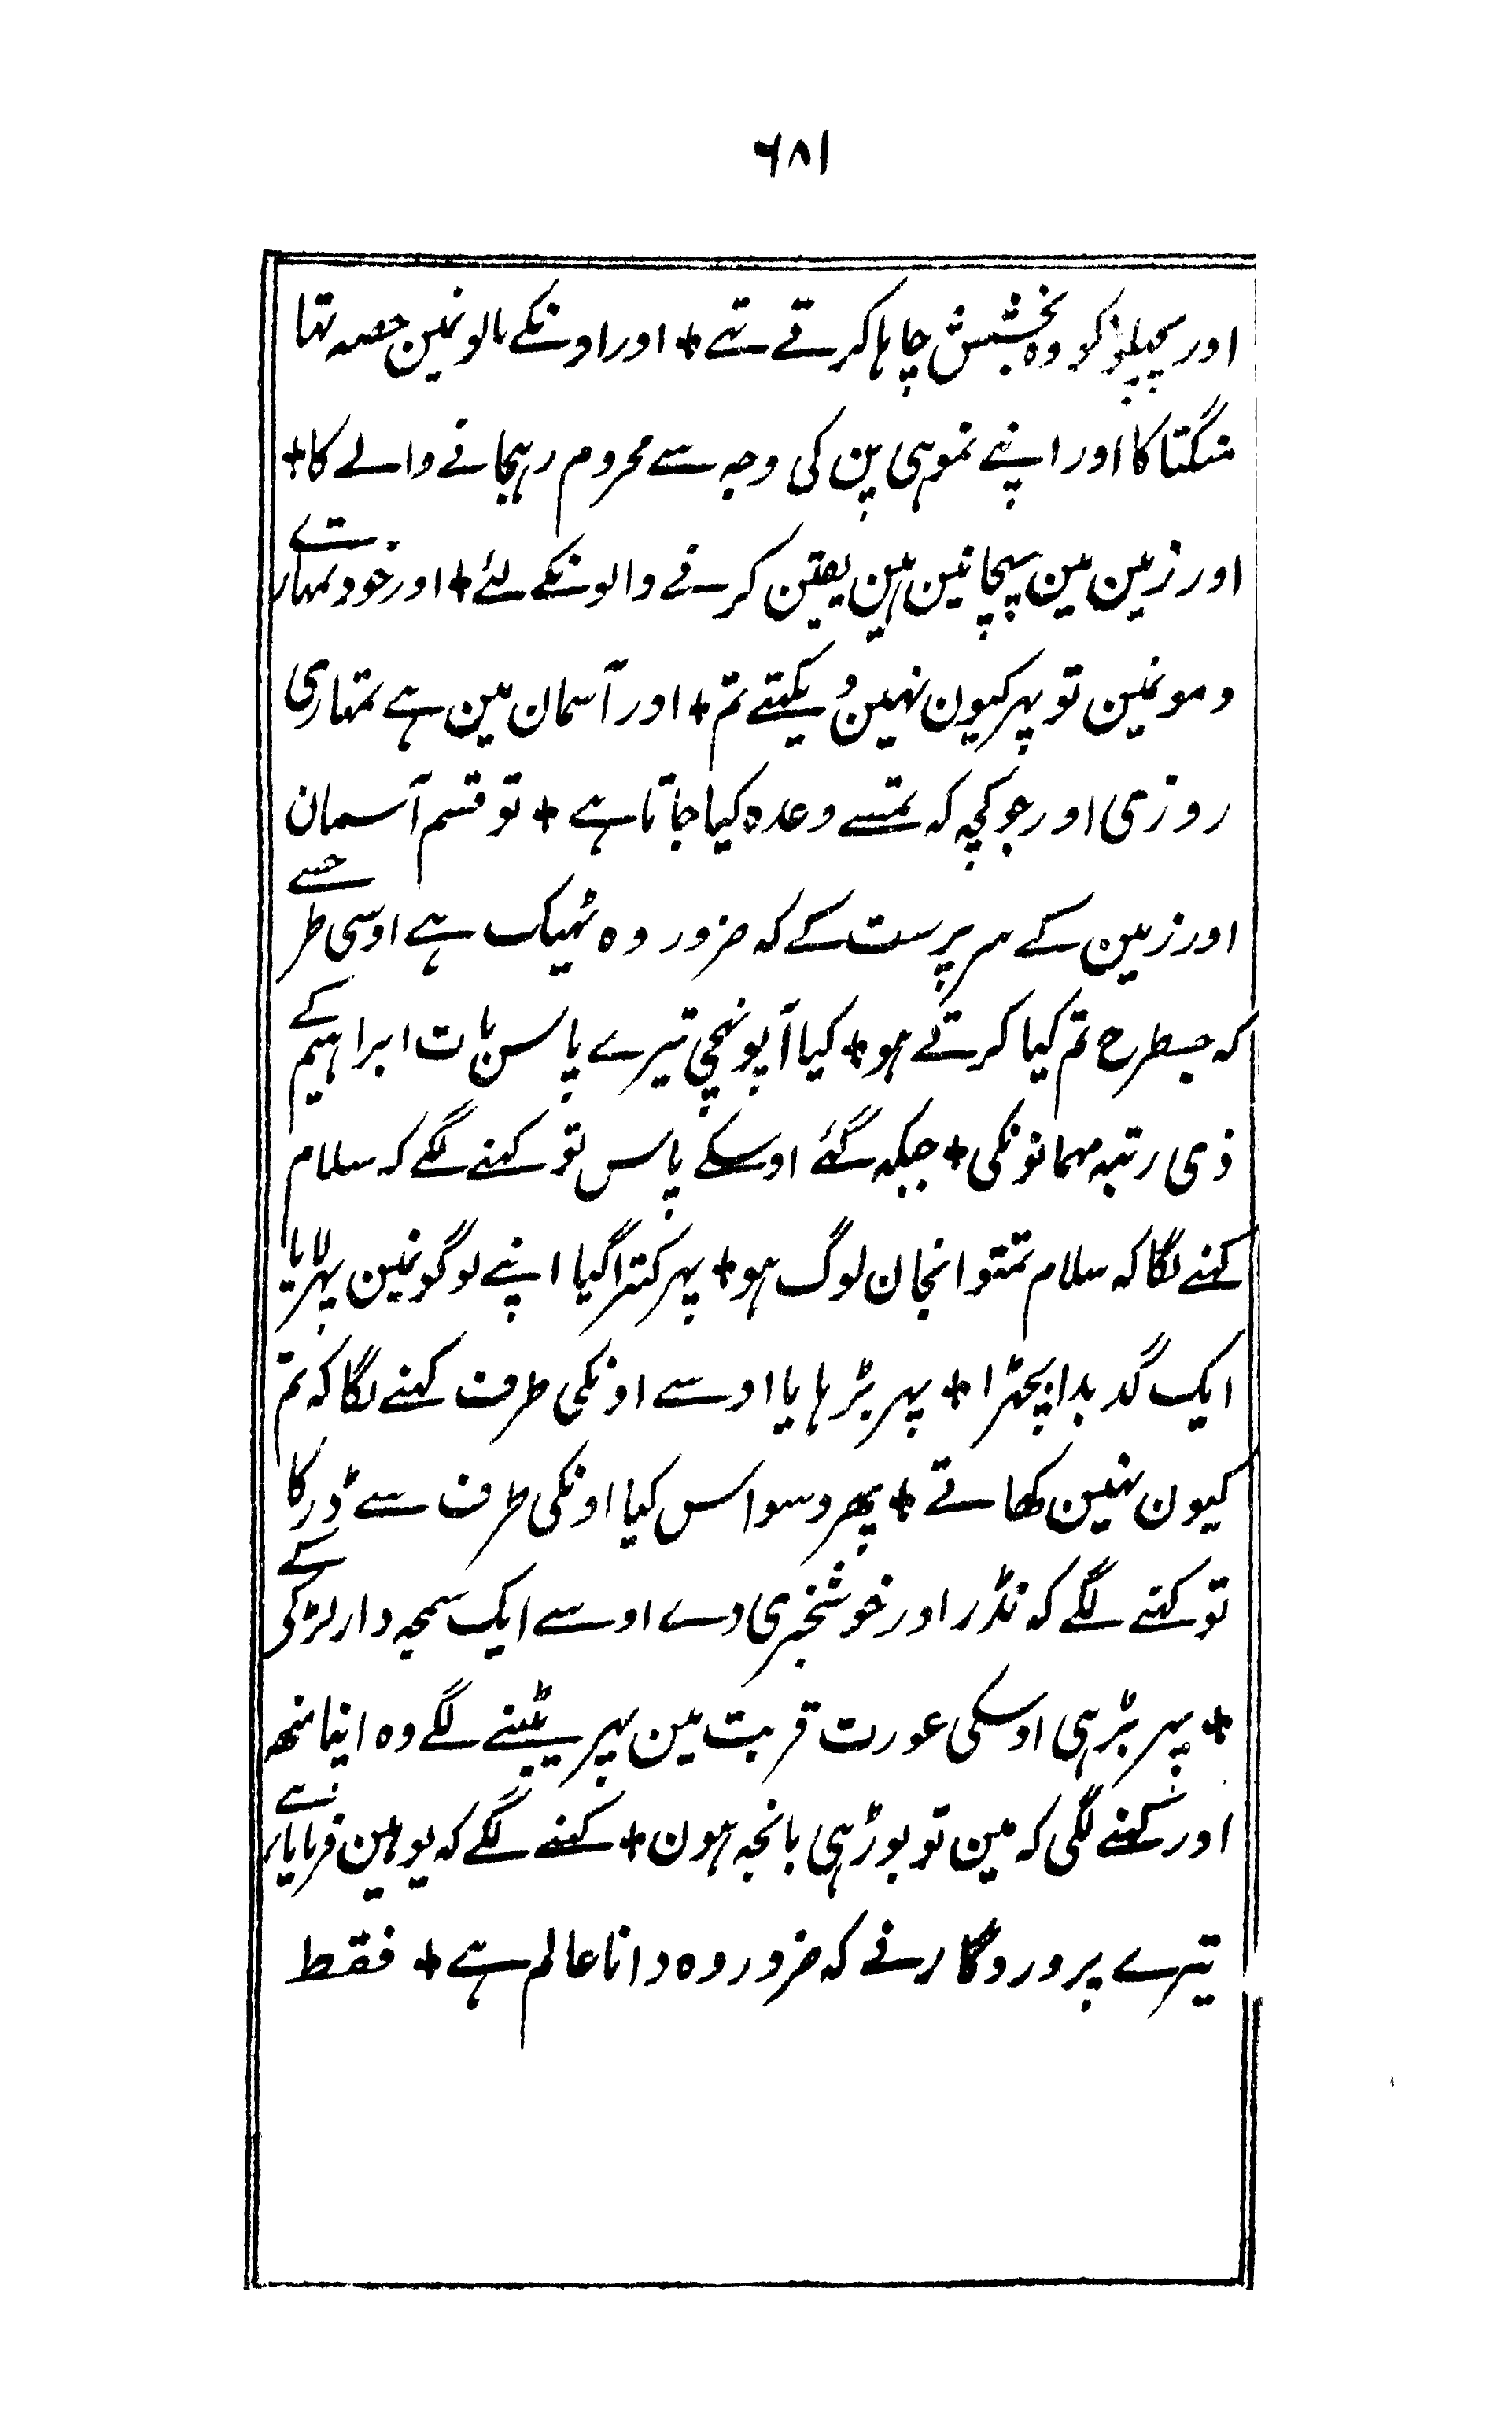 ۶۸۱
اور پچپلونکو وہ بخشش چاہا کرتے تہے + اور اونکے مالونمین حصہ تہا
منگتا کا اور اپنے نموہی پن کی وجہ سے محروم رہجانے والے کا +
اور زمین مین پہچانین ہین یقین کرنے والونکے لئے + اور خود تمہارے
دمونمین تو پہر کیون نہین دیکہتے تم + اور آسمان مین ہے تمہاری
روزی اور جو کچہ کہ تمسے وعدہ کیا جاتا ہے + تو قسم آسمان
اور زمین کے سرپرست کے کہ ضرور وہ ٹہیک ہے اوسی طرحسے
کہ جسطرح تم کیا کرتے ہو + کیا آپونہچی تیرے پاس بات ابراہیم کے
ذی رتبہ مہمانونکی + جبکہ گئے اوسکے پاس تو کہنے لگے کہ سلام
کہنے لگا کہ سلام تمتو انجان لوگ ہو + پہر کترا گیا اپنے لوگونمین پہر لایا
ایک گدبدا بچہڑا + پہر بڑہایا اوسے اونکی طرف کہنے لگا کہ تم
کیون نہین کھاتے + پھر وسواس کیا اونکی طرف سے ڈر کا
تو کہنے لگے کہ نڈر اور خوشخبری دے اوسے ایک سمجہ دار لڑکے کی
+ پہر بڑہی اوسکی عورت قربت مین پہر پیٹنے لگے وہ اپنا منھ
اور کہنے لگی کہ مین تو بوڑہی بانجہ ہون + کہنے لگے کہ یوہین فرمایا ہے
تیرے پروردگار نے کہ ضرور وہ دانا عالم ہے + فقط